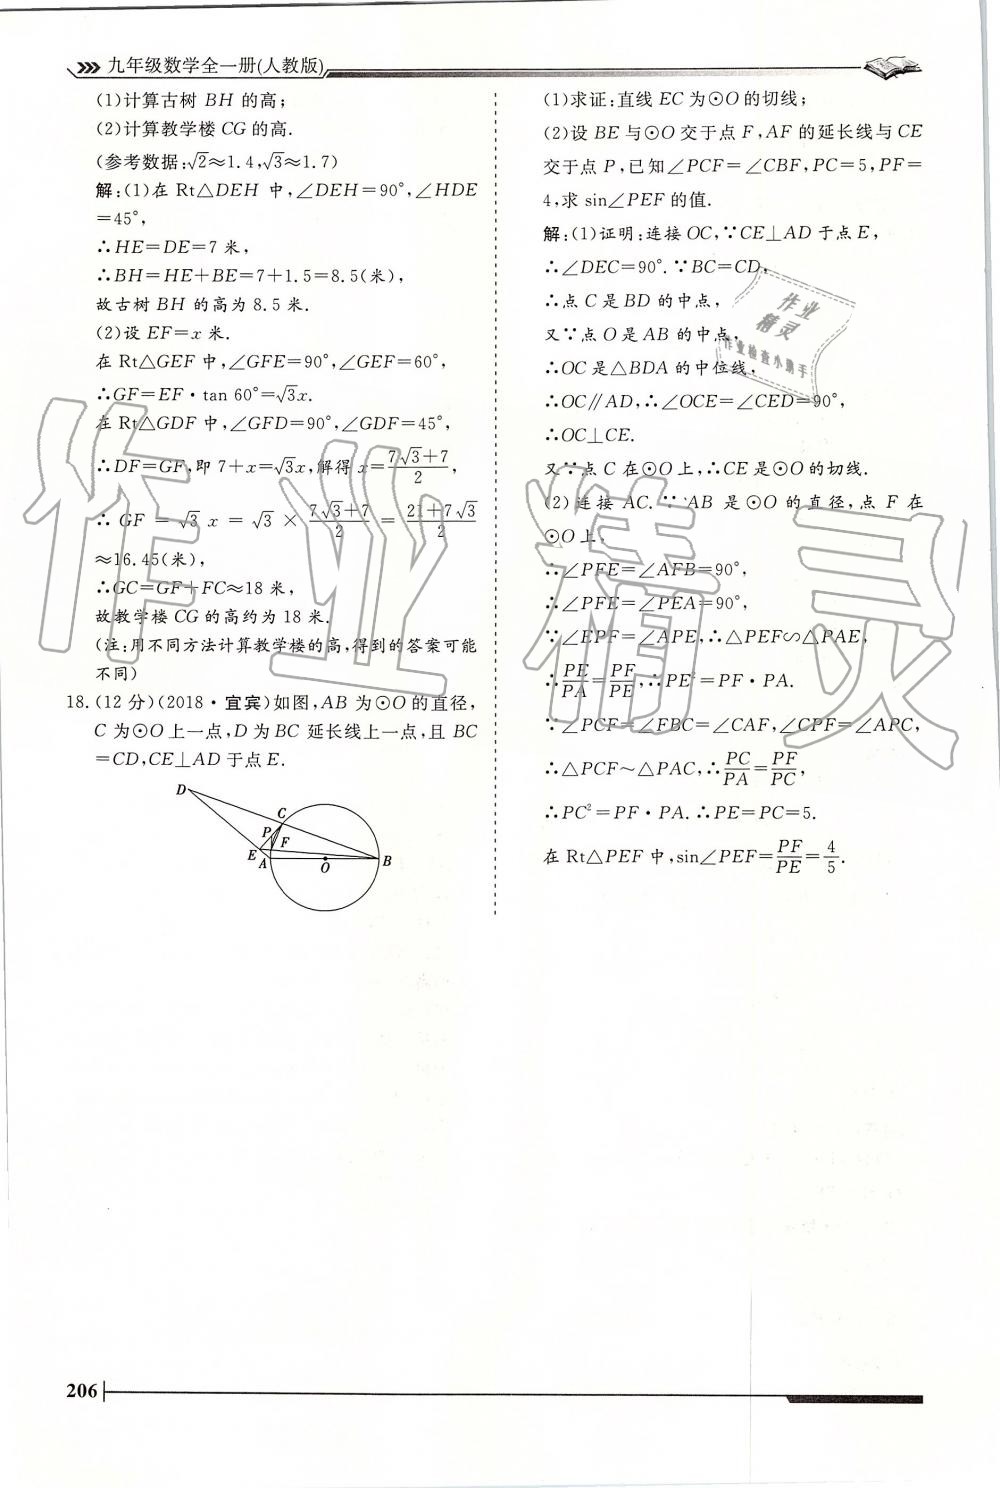 九年级数学全一册(人教版)
(1)计算古树 BH 的高;
(2)计算教学楼 CG 的高.
(参考数据:√2≈1.4,√3≈1.7)
解:(1)在 Rt△DEH 中,∠DEH=90°,∠HDE
=45°,
∴HE=DE=7 米,
∴BH=HE+BE=7+1.5=8.5(米),
故古树 BH 的高为 8.5 米.
(2)设 EF=x 米.
在 Rt△GEF 中,∠GFE=90°,∠GEF=60°,
∴GF=EF·tan 60°=√3x.
在 Rt△GDF 中,∠GFD=90°,∠GDF=45°,
∴DF=GF,即 7+x=√3x,解得 x=(7√3+7)/2,
∴ GF = √3 x = √3 × (7√3+7)/2 = (21+7√3)/2
≈16.45(米),
∴GC=GF+FC≈18 米,
故教学楼 CG 的高约为 18 米.
(注:用不同方法计算教学楼的高,得到的答案可能
不同)
18.(12 分)(2018·宜宾)如图,AB 为⊙O 的直径,
C 为⊙O 上一点,D 为 BC 延长线上一点,且 BC
=CD,CE⊥AD 于点 E.
D
C
P
F
E
A
O
B
(1)求证:直线 EC 为⊙O 的切线;
(2)设 BE 与⊙O 交于点 F,AF 的延长线与 CE
交于点 P,已知∠PCF=∠CBF,PC=5,PF=
4,求 sin∠PEF 的值.
解:(1)证明:连接 OC,∵CE⊥AD 于点 E,
∴∠DEC=90°.∵BC=CD,
∴点 C 是 BD 的中点,
又∵点 O 是 AB 的中点,
∴OC 是△BDA 的中位线,
∴OC∥AD,∴∠OCE=∠CED=90°,
∴OC⊥CE.
又∵点 C 在⊙O 上,∴CE 是⊙O 的切线.
(2)连接 AC.∵ AB 是⊙O 的直径,点 F 在
⊙O 上,
∴∠PFE=∠AFB=90°,
∴∠PFE=∠PEA=90°,
∵∠EPF=∠APE,∴△PEF∽△PAE,
∴PE/PA=PF/PE,∴PE²=PF·PA.
∵∠PCF=∠FBC=∠CAF,∠CPF=∠APC,
∴△PCF~△PAC,∴PC/PA=PF/PC,
∴PC²=PF·PA.∴PE=PC=5.
在 Rt△PEF 中,sin∠PEF=PF/PE=4/5.
作业
精灵
作业检查小助手
作业精灵
206